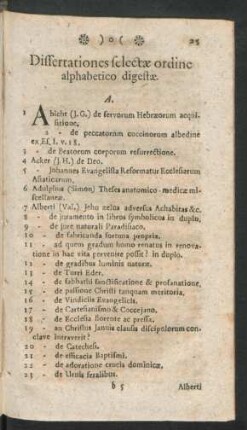 ❉ ) o ( ❉ 25
Dissertationes selectæ ordine
alphabetico digestæ.
A.
1 Abicht (J. G.) de servorum Hebræorum acqui-
sitione,
2 - de peccatorum coccinorum albedine
ex Es. l. v. 18.
3 - de Beatorum corporum resurrectione.
4 Acker (J H.) de Deo.
5 - Johannes Evangelista Reformatur Ecclesiarum
Asiaticarum.
6 Adolphus (Simon) Theses anatomico-medicæ mi-
scellaneæ.
7 Alberti (Val.) Jehu zelus adversus Achabitas &c.
8 - de juramento in libros symbolicos in duplo.
9 - de jure naturali Paradisaco.
10 - de fabricanda fortuna propria.
11 - ad quem gradum homo renatus in renova-
tione in hac vita pervenire possit? in duplo.
12 - de gradibus luminis naturæ.
13 - de Turri Eder.
14 - de sabbathi sanctificatione & profanatione.
15 - de passione Christi tanquam meritoria.
16 - de Vindiciis Evangelicis.
17 - de Cartesianismo & Coccejano.
18 - de Ecclesia florente ac pressa.
19 - an Christus Januis clausis discipulorum con-
clave intraverit?
20 - de Catechesi.
21 - de efficacia Baptismi.
22 - de adoratione crucis dominicæ.
23 - de Ursis feralibus.
b 5 Alberti